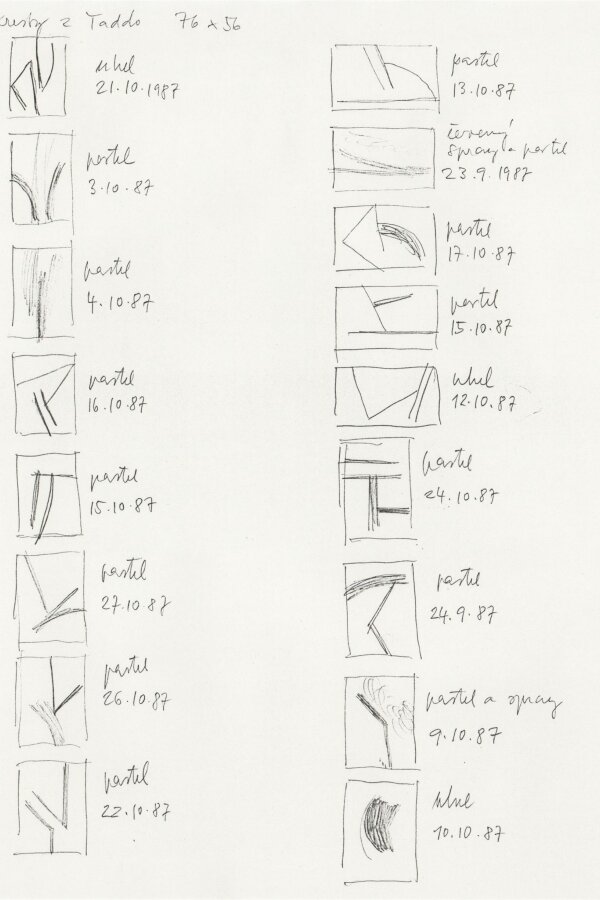 kresby z Taddo 76 x 56
uhel
21.10.1987
pastel
3.10.87
pastel
4.10.87
pastel
16.10.87
pastel
15.10.87
pastel
27.10.87
pastel
26.10.87
pastel
22.10.87
pastel
13.10.87
červený
spray a pastel
23.9.1987
pastel
17.10.87
pastel
15.10.87
uhel
12.10.87
pastel
24.10.87
pastel
24.9.87
pastel a spray
9.10.87
uhel
10.10.87